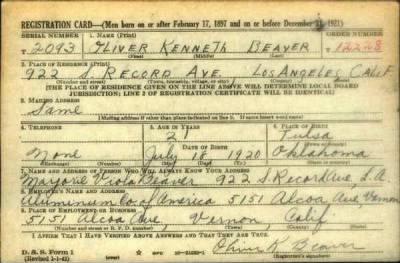 REGISTRATION CARD—(Men born on or after February 17, 1897 and on or before December 31, 1921)
SERIAL NUMBER 1. NAME (Print) ORDER NUMBER
T 2093 OLIVER KENNETH BEAVER 12228
(First) (Middle) (Last)
2. PLACE OF RESIDENCE (Print)
922 S. RECORD AVE. LOS ANGELES CALIF
(Number and street) (Town, township, village, or city) (County) (State)
(THE PLACE OF RESIDENCE GIVEN ON THE LINE ABOVE WILL DETERMINE LOCAL BOARD
JURISDICTION; LINE 2 OF REGISTRATION CERTIFICATE WILL BE IDENTICAL)
3. MAILING ADDRESS
Same
(Mailing address if other than place indicated on line 2. If same insert word same)
4. TELEPHONE 5. AGE IN YEARS 6. PLACE OF BIRTH
21 Tulsa
DATE OF BIRTH (Town or county)
None July 18 1920 Oklahoma
(Exchange) (Number) (Mo.) (Day) (Yr.) (State or country)
7. NAME AND ADDRESS OF PERSON WHO WILL ALWAYS KNOW YOUR ADDRESS
Marjorie Viola Beaver 922 S. Record Ave, L.A.
8. EMPLOYER'S NAME AND ADDRESS
Aluminum Co. of America 5151 Alcoa Ave, Vernon
9. PLACE OF EMPLOYMENT OR BUSINESS
5151 Alcoa Ave, Vernon, Calif.
(Number and street or R. F. D. number) (Town) (County) (State)
I AFFIRM THAT I HAVE VERIFIED ABOVE ANSWERS AND THAT THEY ARE TRUE.
D. S. S. Form 1
Oliver K Beaver